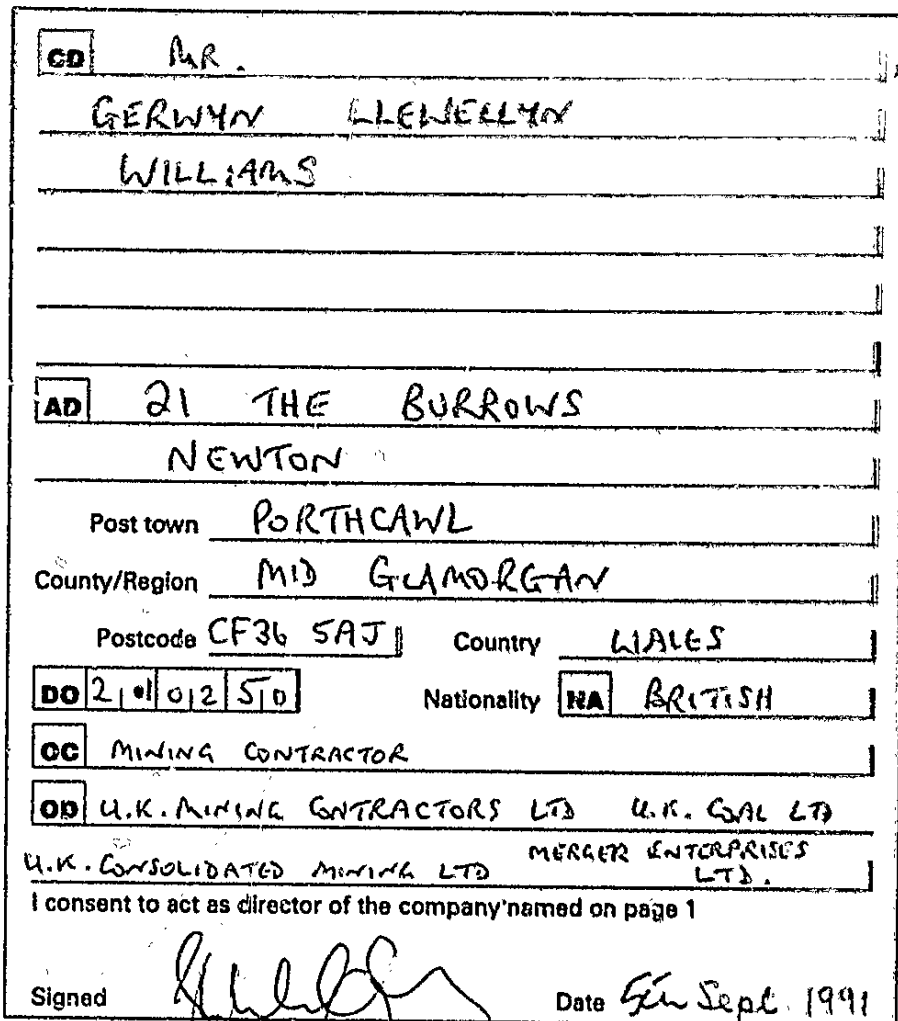 CD MR.
GERWYN LLEWELLYN
WILLIAMS
AD 21 THE BURROWS
NEWTON
Post town PORTHCAWL
County/Region MID GLAMORGAN
Postcode CF36 5AJ Country WALES
DO 2 0 2 5 0 Nationality NA BRITISH
OC MINING CONTRACTOR
OD U.K. MINING CONTRACTORS LTD U.K. COAL LTD
U.K. CONSOLIDATED MINING LTD MERGER ENTERPRISES LTD.
I consent to act as director of the company named on page 1
Signed Date 5th Sept. 1991